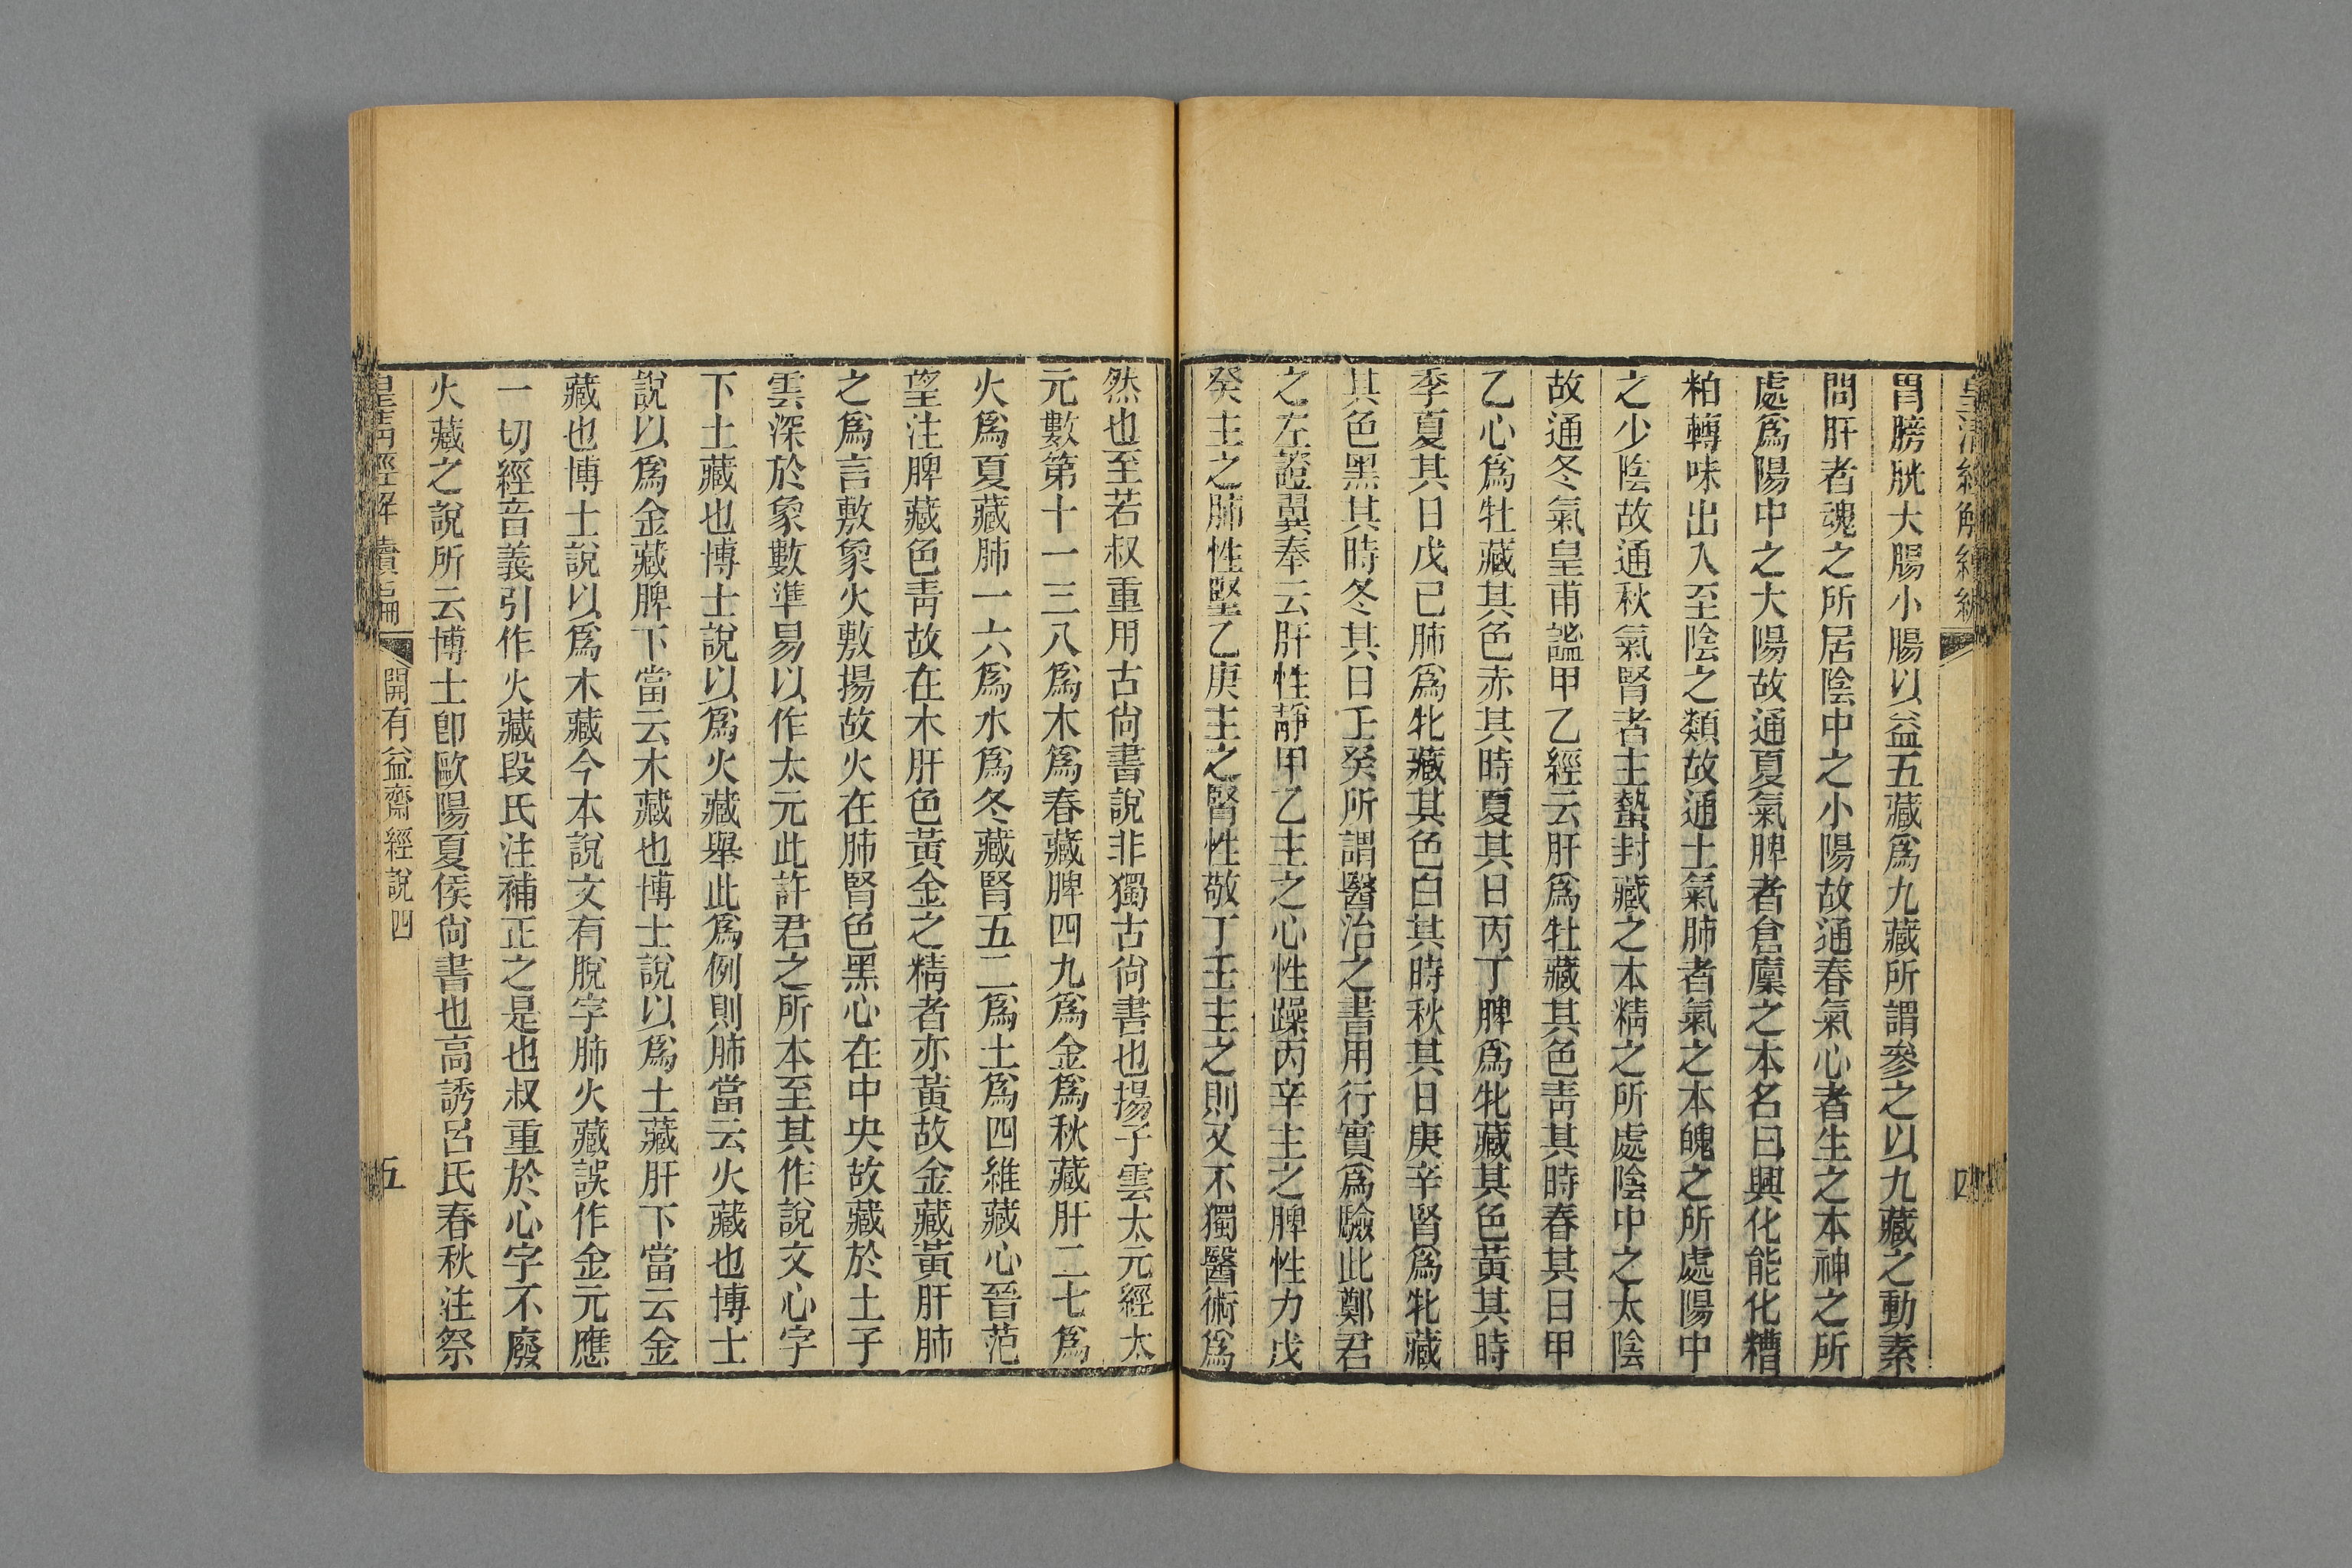 皇清經解續編
四
胃膀胱大腸小腸以益五藏爲九藏所謂參之以九藏之動素
問肝者魂之所居陰中之小陽故通春氣心者生之本神之所
處爲陽中之大陽故通夏氣脾者倉廩之本名曰興化能化糟
粕轉味出入至陰之類故通土氣肺者氣之本魄之所處陽中
之少陰故通秋氣腎者主蟄封藏之本精之所處陰中之太陰
故通冬氣皇甫謐甲乙經云肝爲牡藏其色靑其時春其日甲
乙心爲牡藏其色赤其時夏其日丙丁脾爲牝藏其色黃其時
季夏其日戊己肺爲牝藏其色白其時秋其日庚辛腎爲牝藏
其色黑其時冬其日壬癸所謂醫治之書用行實爲驗此鄭君
之左證翼奉云肝性靜甲乙主之心性躁丙辛主之脾性力戊
癸主之肺性堅乙庚主之腎性敬丁壬主之則又不獨醫術爲
然也至若叔重用古尙書說非獨古尙書也揚子雲太元經太
元數第十一三八爲木爲春藏脾四九爲金爲秋藏肝二七爲
火爲夏藏肺一六爲水爲冬藏腎五二爲土爲四維藏心晉范
望注脾藏色靑故在木肝色黃金之精者亦黃故金藏黃肝肺
之爲言敷象火敷揚故火在肺腎色黑心在中央故藏於土子
雲深於象數準易以作太元此許君之所本至其作說文心字
下土藏也博士說以爲火藏舉此爲例則肺當云火藏也博士
說以爲金藏脾下當云木藏也博士說以爲土藏肝下當云金
藏也博士說以爲木藏今本說文有脫字肺火藏誤作金元應
一切經音義引作火藏段氏注補正之是也叔重於心字不廢
火藏之說所云博士卽歐陽夏侯尙書也高誘呂氏春秋注祭
皇淸經解續編
開有益齋經說四
五